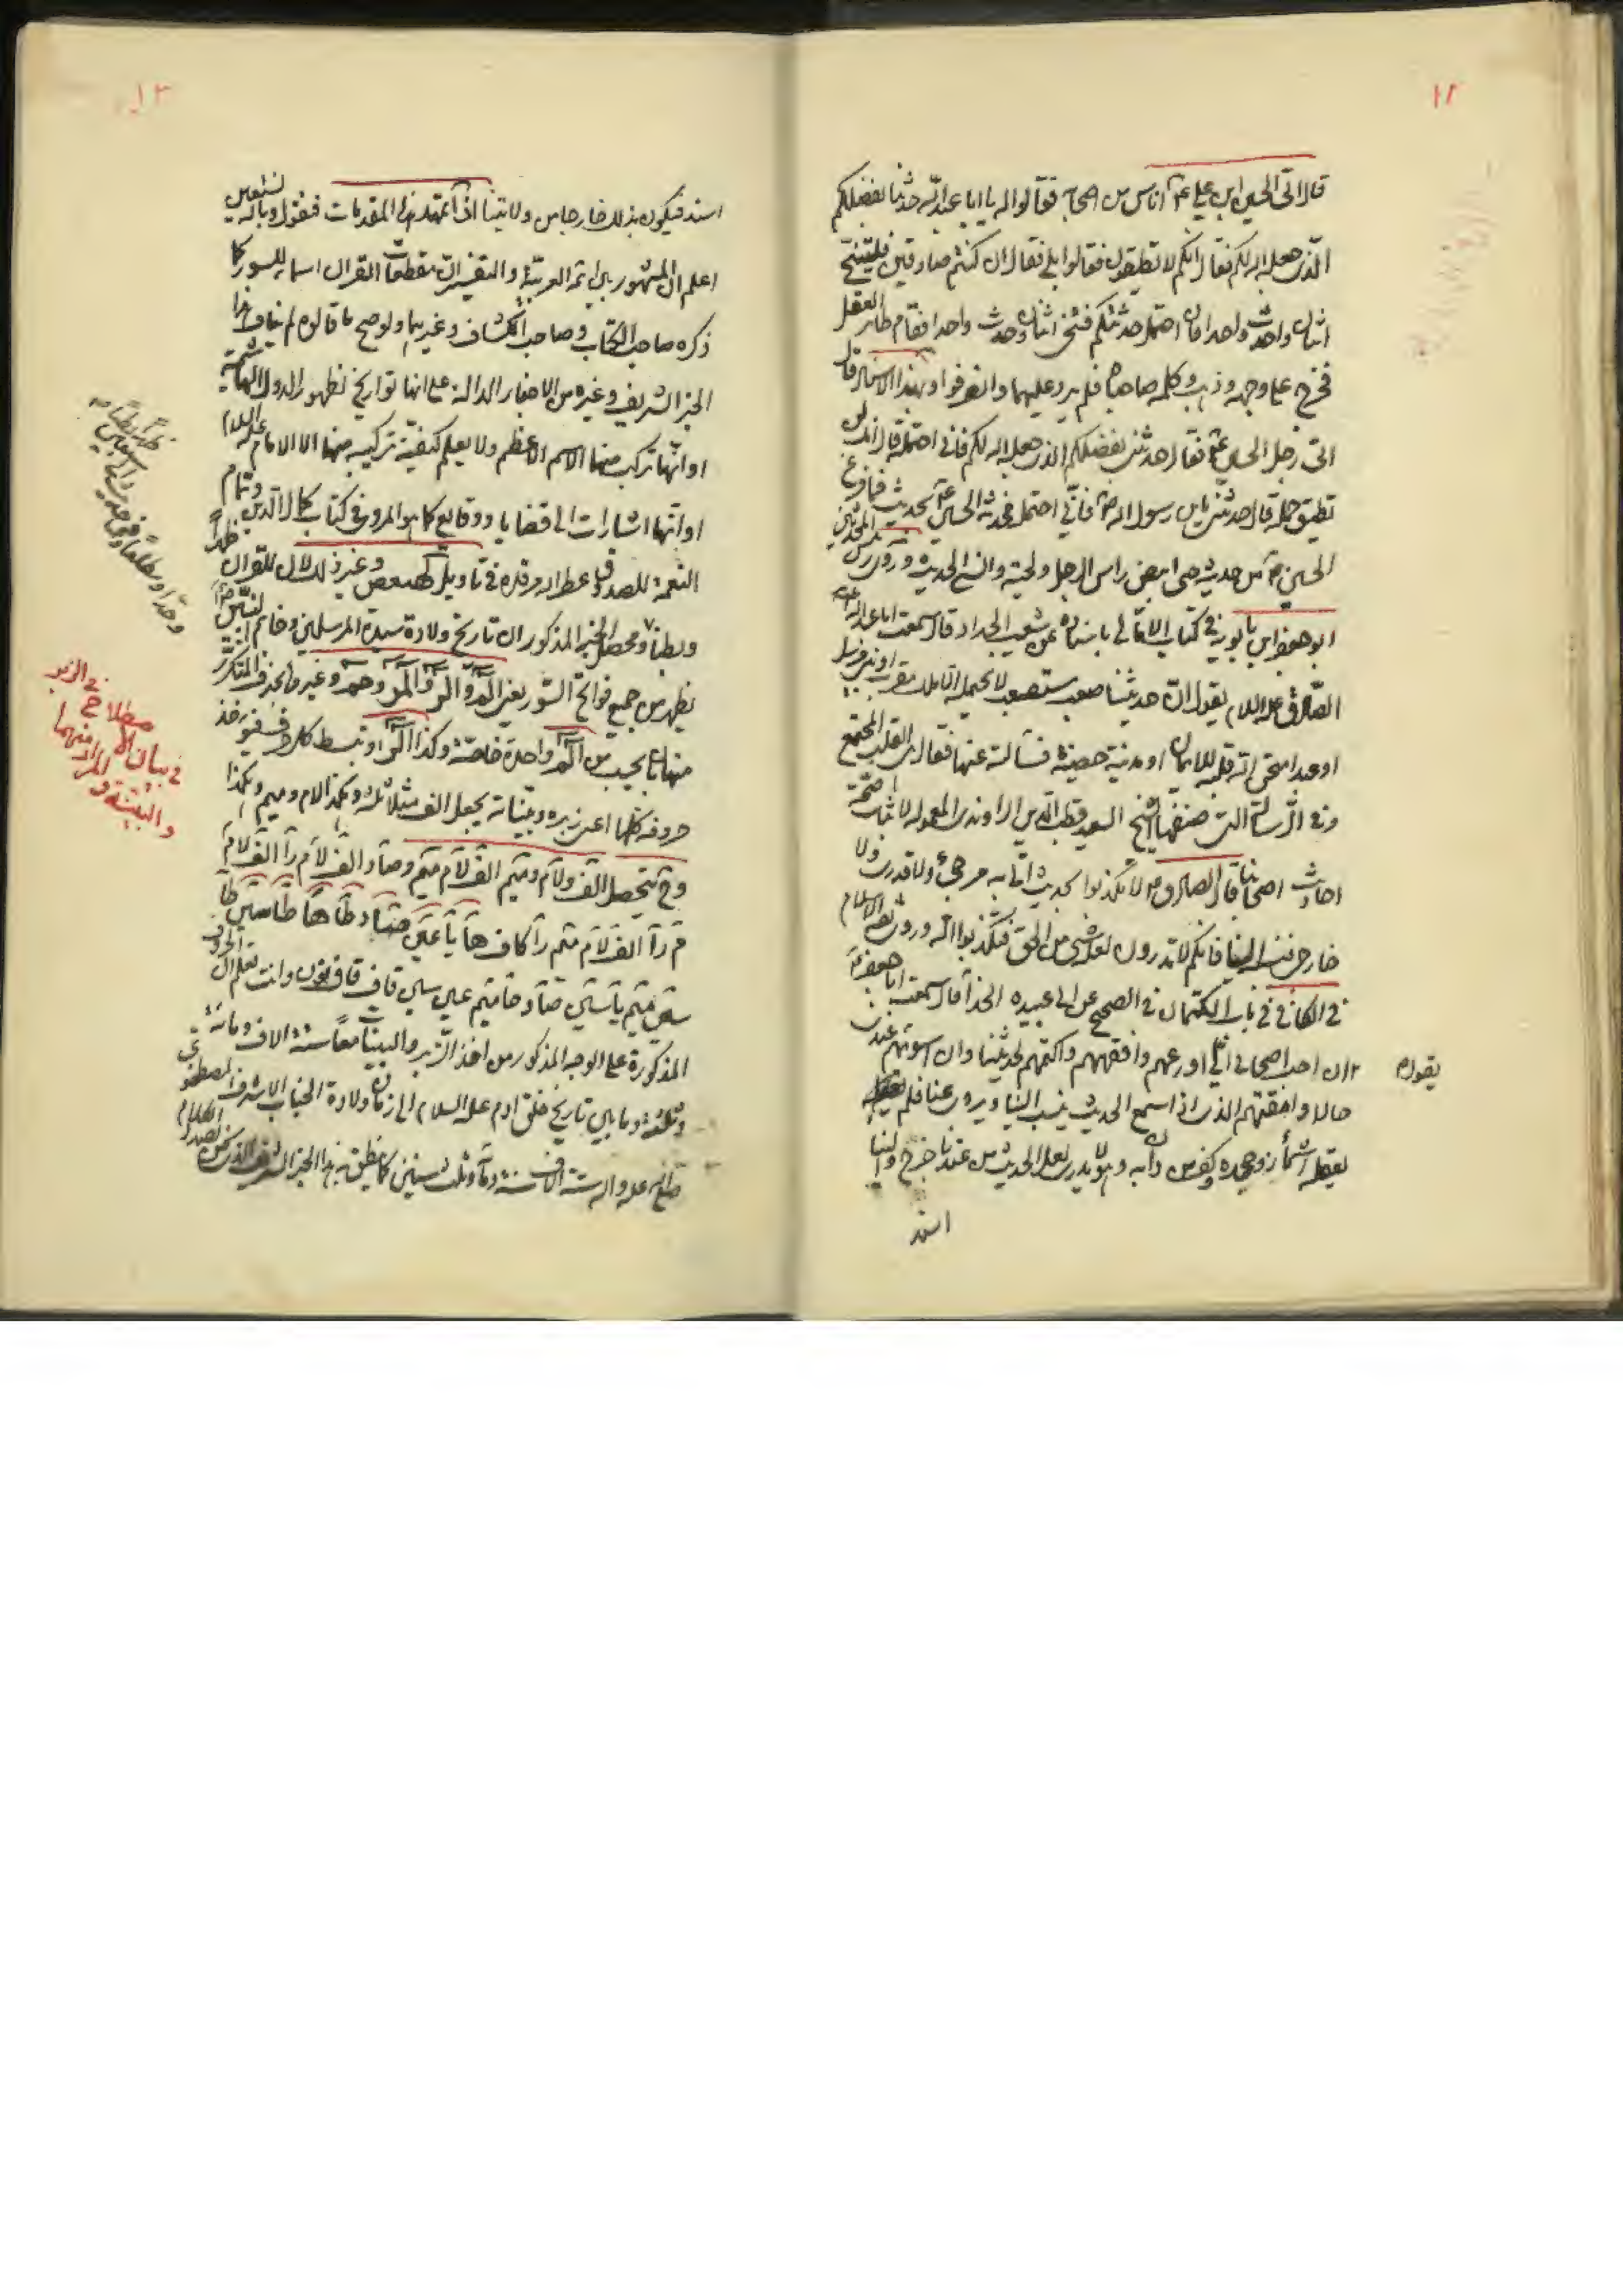 ١٢
قال اتى الحسين ابن علي ع م اناس من اصحابه فقالوا له يا ابا عبد الله حدثنا بفضلكم
الذى جعل الله لكم فقال انكم لا تطيقون فقالوا بلى فقال ان كنتم صادقين فليتنح
اثنان واحدث واحدا فان احتمل حدثتكم فتنحى اثنان وحدث واحدا فقام طاير العقل
فخرج على وجهه وذهب وكلمه صاحباه فلم يرد عليهما وانصرفوا وبهذا الاسناد قال
اتى رجل الحسين ع م فقال حدثنى بفضلكم الذى جعل الله لكم فانى احتمله قال انك لن
تطيق حمله قال حدثنى يابن رسول الله ص فانى احتمل فحدثه الحسين ع م بحديث فما فرغ
الحسين ع م من حديثه حتى ابيض راس الرجل ولحيته وانسى الحديث وروى رئيس المحدثين
ابو جعفر ابن بابويه فى كتاب الامالى باسناده عن شعيب الحداد قال سمعت ابا عبد الله
الصادق عليه السلام يقول ان حديثنا صعب مستصعب لا يحتمله الا ملك مقرب او نبى مرسل
او عبد امتحن الله قلبه للايمان او مدينة حصينة فسألته عنها فقال القلب المجتمع
وفى الرسالة التى صنفها الشيخ السعيد قطب الدين الراوندى المعموله لاثبات صحة
احاديث اصحابنا قال الصادق ع م لا تكذبوا بحديث اتى به مرجئ ولا قدرى ولا
خارجى نسبه الينا فانكم لا تدرون لعله شئ من الحق فتكذبوا الله وروى ثقة الاسلام
فى الكافى فى باب الكتمان فى الصحيح عن ابى عبيده الحذآ قال سمعت ابا جعفر ع م
يقول ان احب اصحابى الى اورعهم وافقههم واكتمهم لحديثنا وان اسوئهم عندى
حالا وامقتهم الذى اذا سمع الحديث ينسب الينا ويروى عنا فلم
يقبله اشمأز وجحده وكفر من دان به وهو لا يدرى لعل الحديث من عندنا خرج والينا
اسند
١٣
اسند فيكون بذلك خارجا من ولايتنا اذا تمهد هذه المقدمات فنقول وبالله نستعين
اعلم ان المشهور بين ائمة العربية والتفسير ان مقطعات القرآن اسماء للسور كما
ذكره صاحب الكتاب وصاحب الكشاف وغيرهما ولو صح ما قالوه لم يناف هذا
الخبر الشريف وغيره من الاخبار الدالة على انها تواريخ لظهور الدول
او انها تركب منها الاسم الاعظم ولا يعلم كيفية تركيبه منها الا الامام عليه السلام
او انها اشارات الى قضايا ووقايع كما هو المروى فى كتاب كمال الدين وتمام
النعمة للصدوق عطر الله مرقده فى تأويل كهيعص وغير ذلك لان للقران ظهراً
وبطناً ومحصل الخبر المذكور ان تاريخ ولادة سيد المرسلين وخاتم النبيين ص
يظهر من جميع فواتح السور يعنى الم والر والمر وحم وغيرها بحذف المتكرر
منها بان يحسب من الم واحدة خاصة وكذا الر وتبسط كل حرف فيؤخذ
حروفه كلها اعنى زبره وبيناته يجعل الف مثلا ثلثه وهكذا لام وميم وهكذا
وح يتحصل الف ولام وميم الف لام ميم وصاد الف لام را الف لام
م را الف لام ميم را كاف ها يا عين صاد طا ها طا سين طا
سين ميم يا سين صاد حا ميم عين سين قاف قاف نون وانت تعلم ان الحروف
المذكورة على الوجه المذكور من اخذ الزبر والبينات معا ستة الاف ومائة
وثلثة وما بين تاريخ خلق ادم عليه السلام الى زمان ولادة الجناب الاشرف المصطفوى
صلى الله عليه واله ستة الاف سنة ومأة وثلث سنين كما نطق به هذا الخبر الشريف الذى نحن بصدد الكلام
ظهراً وبطناً
وحدّا ومطلعاً
فى بيان الاصطلاح فى الزبر
والبينة والمراد منهما